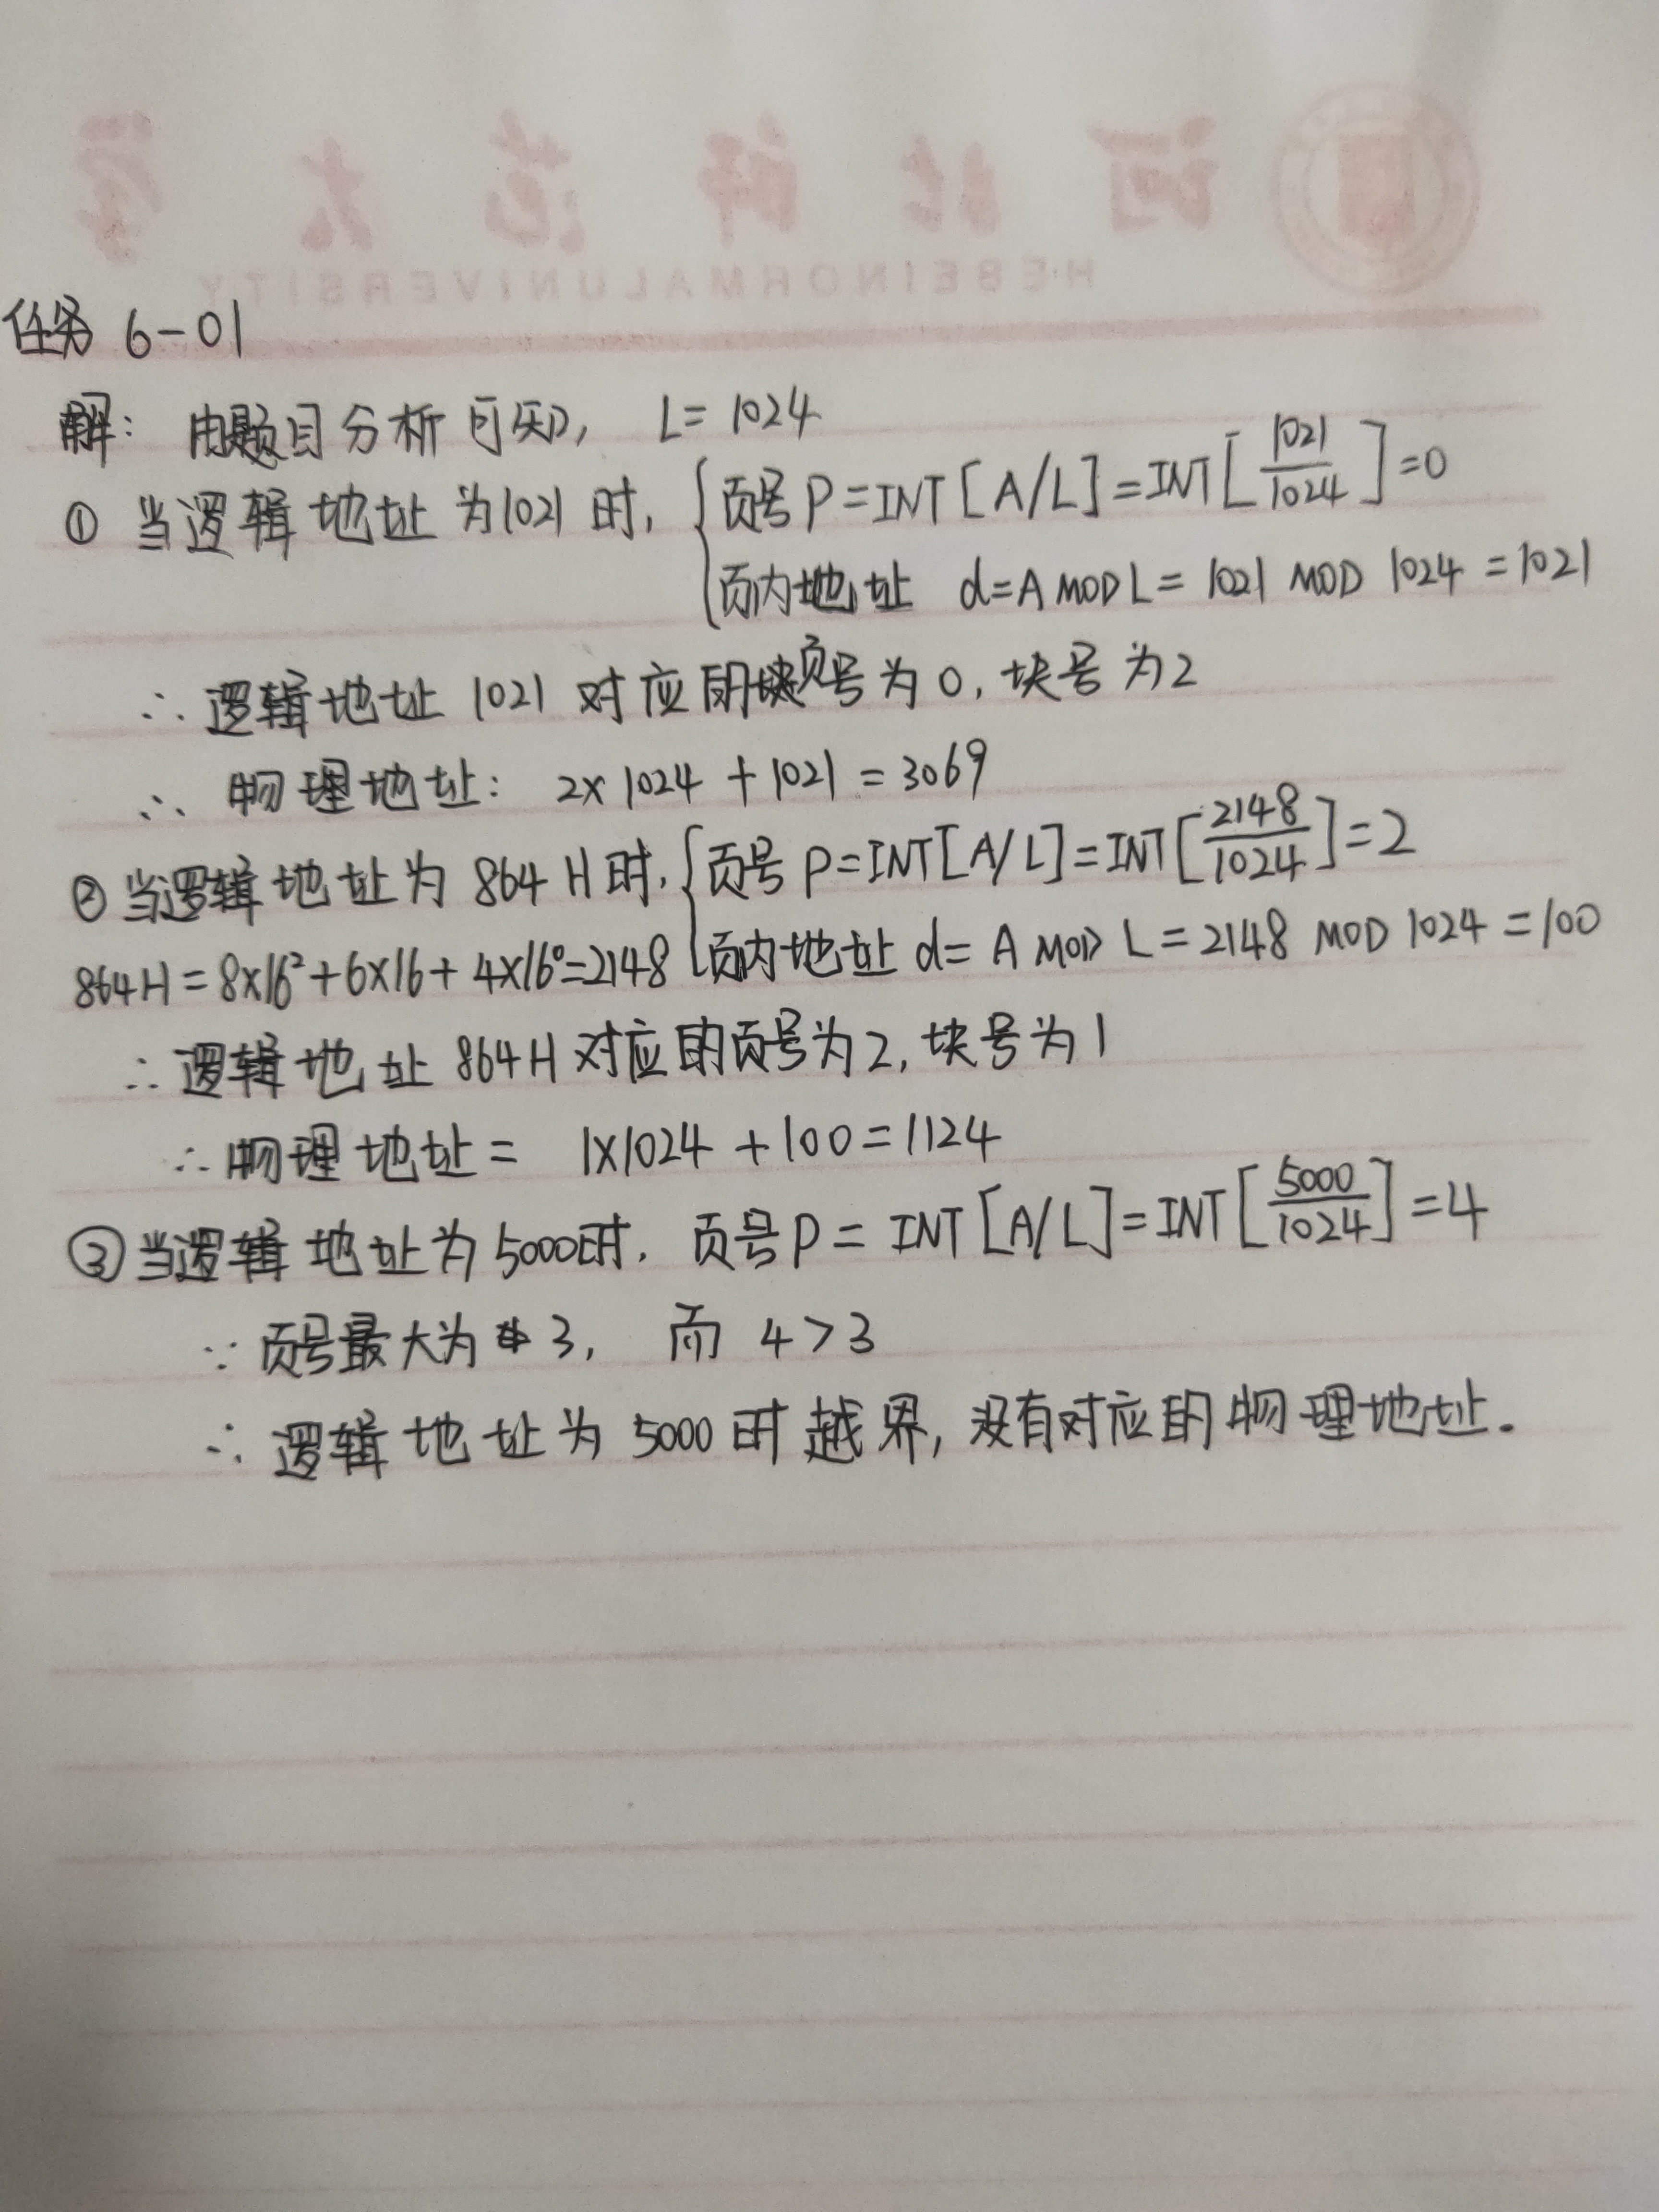 河北师范大学
HEBEINORMALUNIVERSITY
任务 6-01
解: 由题目分析可知, L=1024
① 当逻辑地址为1021时, { 页号 P=INT[A/L]=INT[1021/1024]=0
页内地址 d=A MOD L=1021 MOD 1024=1021
∴ 逻辑地址 1021 对应的页号为0, 块号为2
∴ 物理地址: 2×1024+1021=3069
② 当逻辑地址为 864H时, { 页号 P=INT[A/L]=INT[2148/1024]=2
864H=8×16²+6×16+4×16⁰=2148 页内地址 d=A MOD L=2148 MOD 1024=100
∴ 逻辑地址 864H对应的页号为2, 块号为1
∴ 物理地址= 1×1024+100=1124
③ 当逻辑地址为5000时, 页号P=INT[A/L]=INT[5000/1024]=4
∵ 页号最大为3, 而 4>3
∴ 逻辑地址为 5000时越界, 没有对应的物理地址.